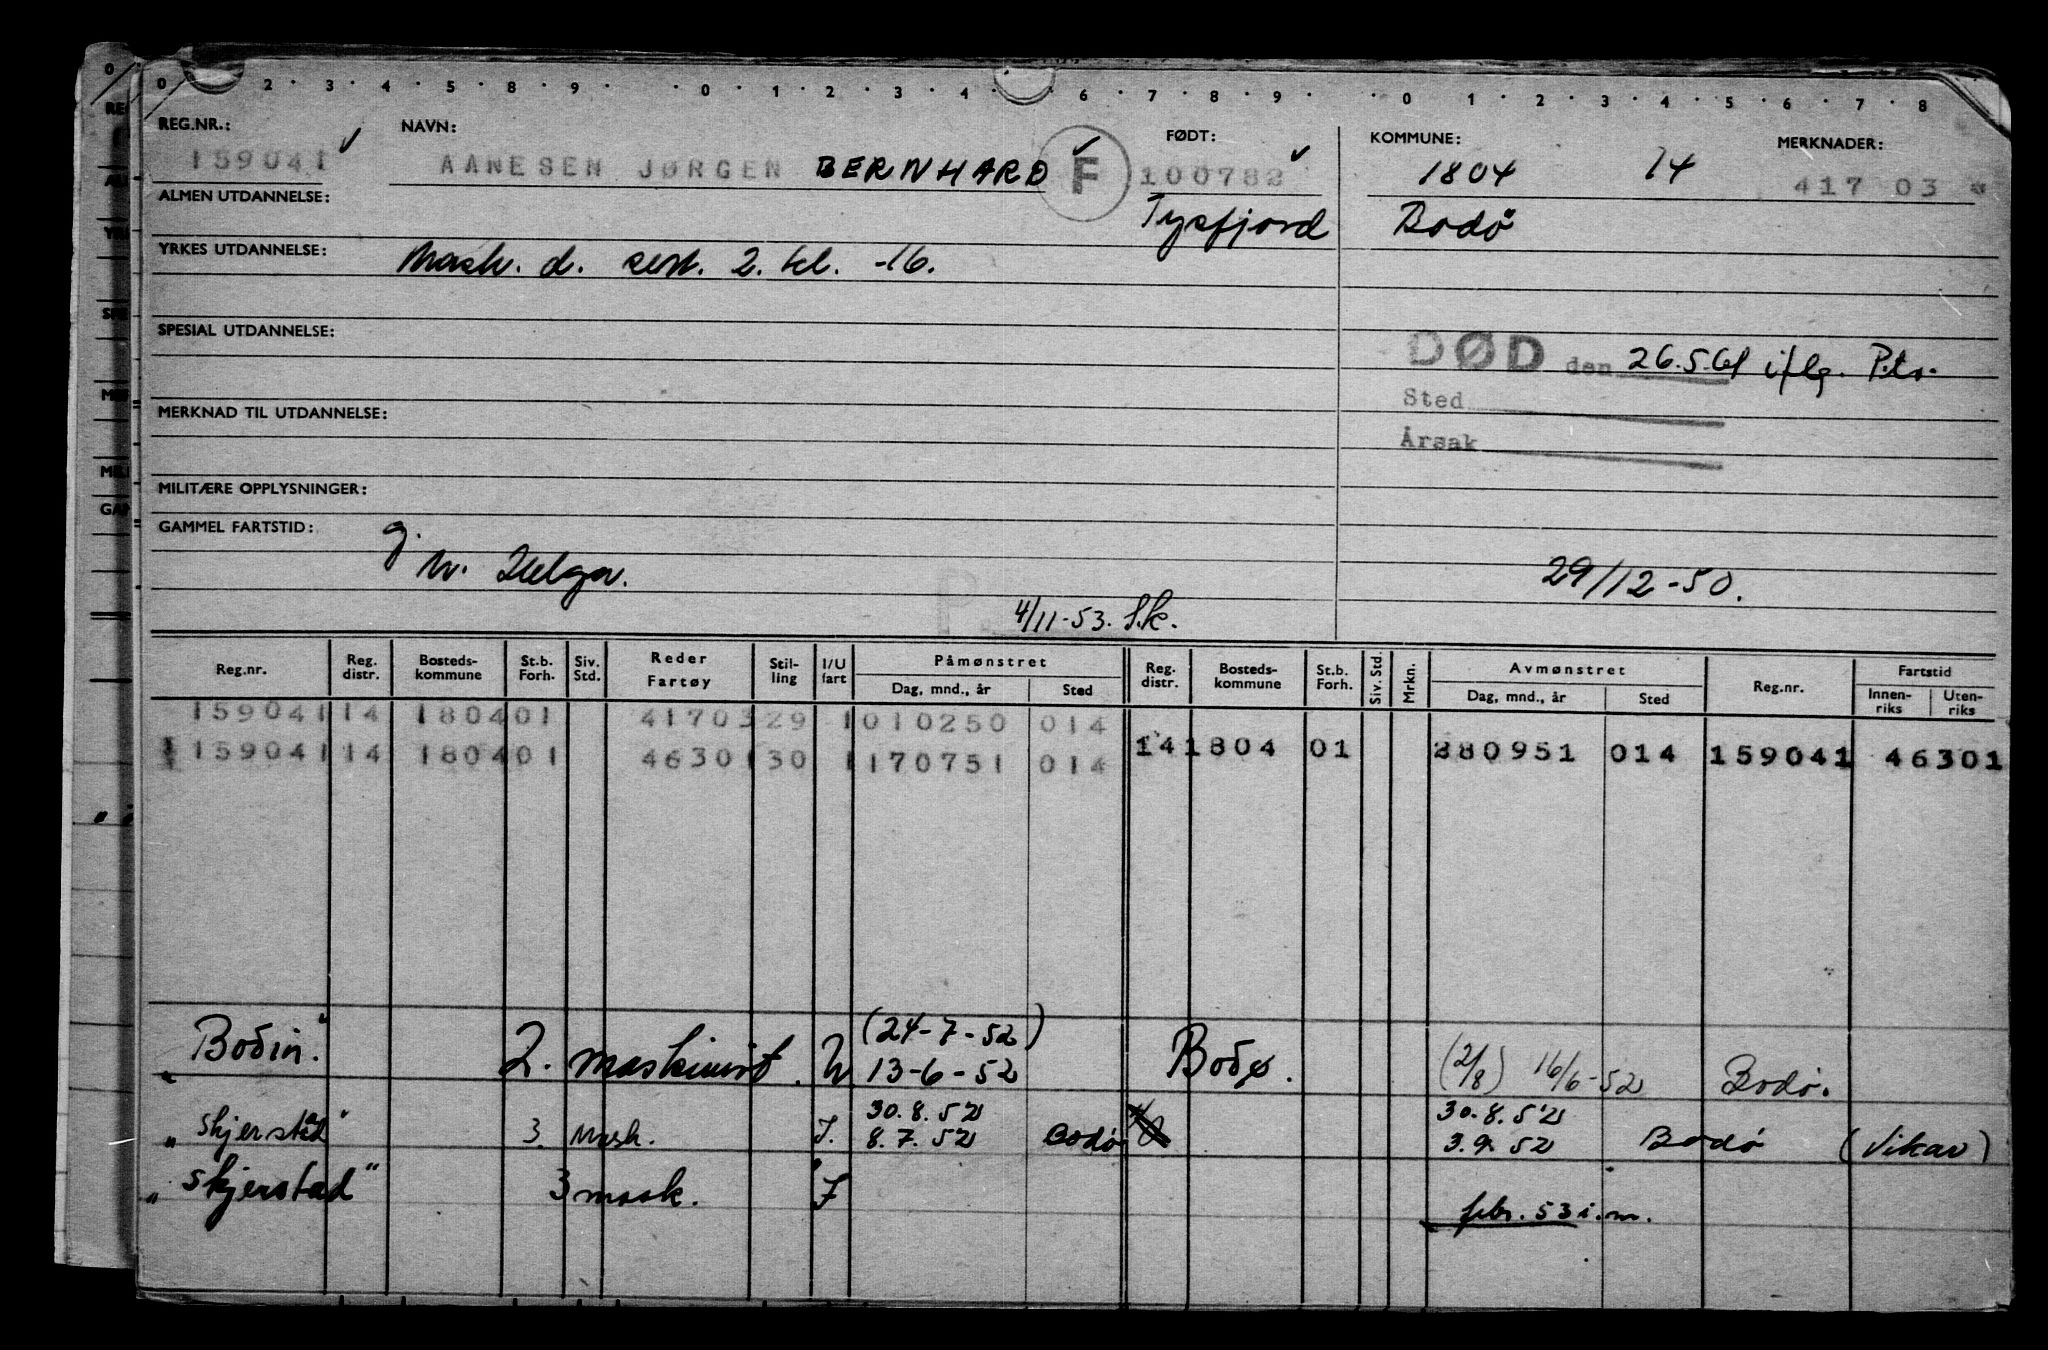 0 · 2 · 3 · 4 · 5 · 8 · 9 · · 0 · 1 · 2 · 3 · 4 · 6 · 7 · 8 · 9 · · 0 · 1 · 2 · 3 · 4 · 5 · 6 · 7 · 8
REG.NR.: NAVN: FØDT: KOMMUNE: MERKNADER:
159041 AANESEN JØRGEN BERNHARD F 100782 1804 14 417 03
ALMEN UTDANNELSE: Tysfjord Bodø
YRKES UTDANNELSE: Mask. d. sert. 2. kl. -16.
SPESIAL UTDANNELSE:
DØD den 26.5.61 iflg. P.tr.
Sted
MERKNAD TIL UTDANNELSE:
Årsak
MILITÆRE OPPLYSNINGER:
GAMMEL FARTSTID: g.
m. Helga. 29/12-50.
4/11-53. S.k.
Reg.nr. Reg. distr. Bosteds-kommune St.b. Forh. Siv. Std. Reder Fartøy Stil-ling I/U fart Påmønstret Dag, mnd., år Sted Reg. distr. Bosteds-kommune St.b. Forh. Siv. Std. Mrkn. Avmønstret Dag, mnd., år Sted Reg.nr. Fartstid Innen-riks Uten-riks
159041 14 1804 01 41703 29 1 010250 014
159041 14 1804 01 46301 30 1 170751 014 14 1804 01 280951 014 159041 46301
(24-7-52)
"Bodin" 2. maskinist. 13-6-52 Bodø. (2/8) 16/6-52 Bodø.
30.8.52 30.8.52
"Skjerstad" 3. Mask. I. 8.7.52 Bodø 3.9.52 Bodø (Vikar)
"Skjerstad" 3 mask. I febr. 53 i.m.